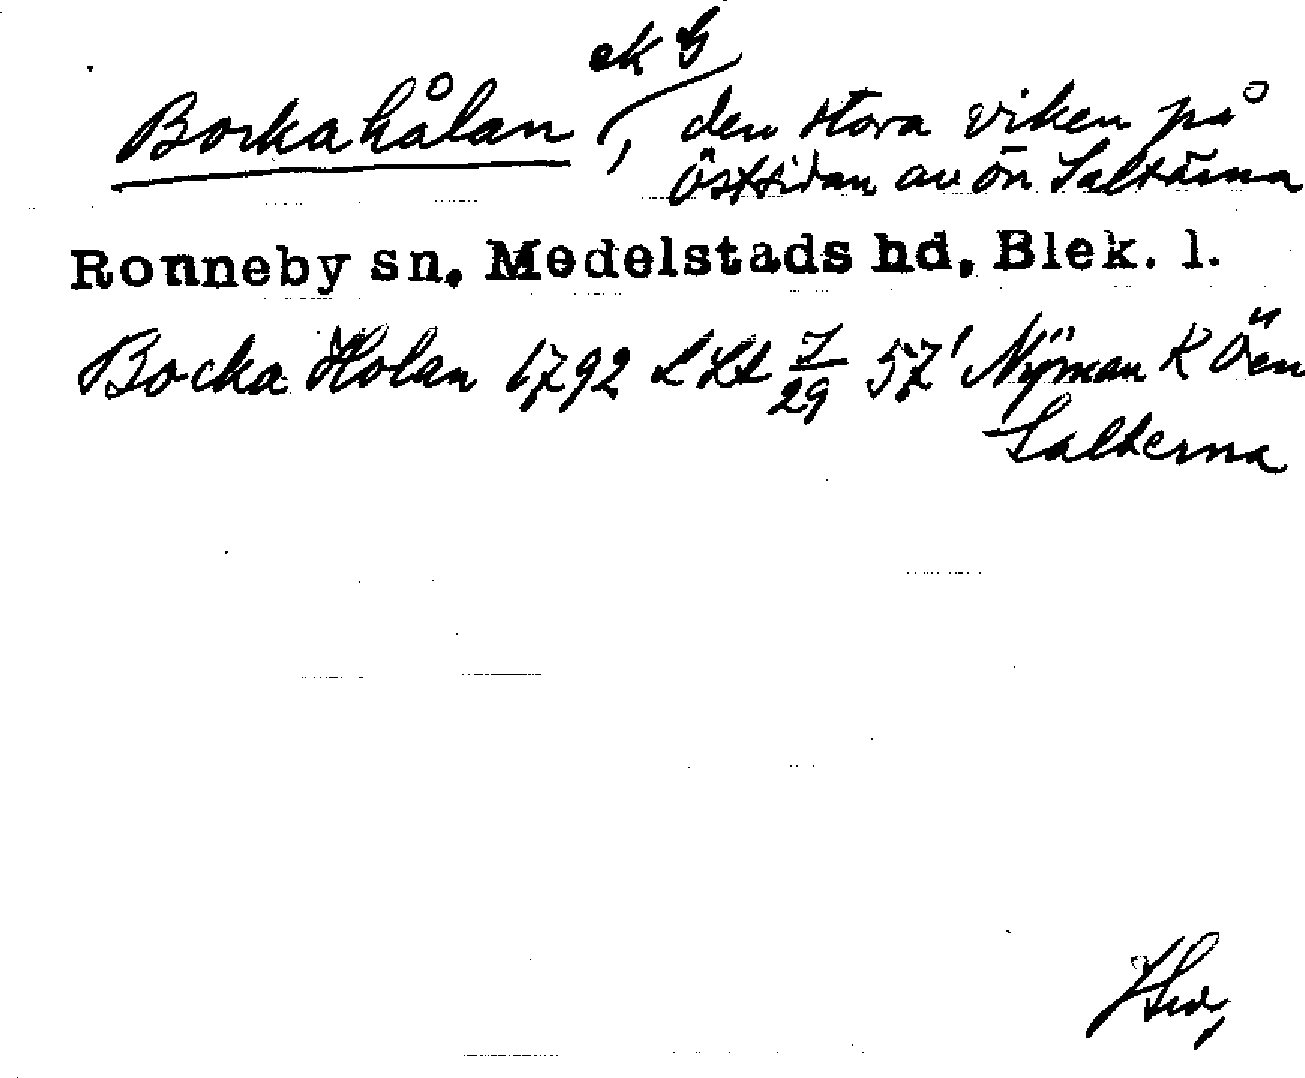 ek G
Bockahålan, den stora viken på
östsidan av ön Saltärna
Ronneby sn. Medelstads hd. Blek. l.
Bocka Holan 1792 LSt 7/29 57' Nyman K Öen
Salterna